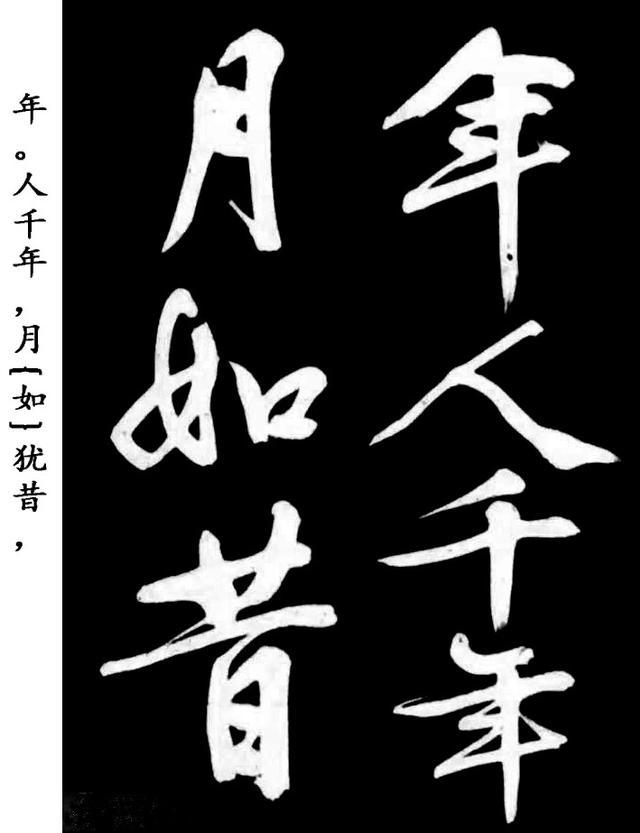 年人千年
月如昔
年。人千年，月{如}犹昔，